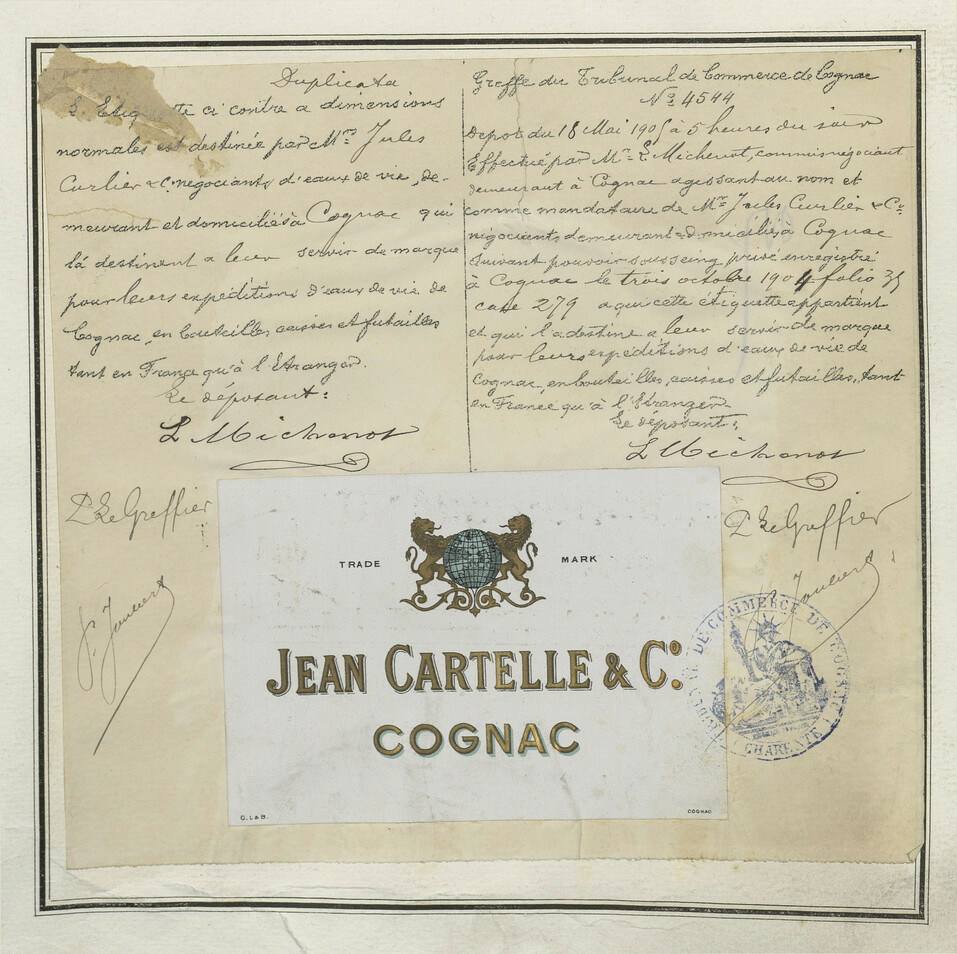 Duplicata
L'Etiquette ci contre a dimensions
normales est destinée par Mrs Jules
Curlier & C. négociants d'eaux de vie, de-
meurant et domiciliés à Cognac qui
la destinent a leur servir de marque
pour leurs expéditions d'eaux de vie de
Cognac, en bouteilles, caisses et futailles
tant en France qu'à l'Etranger.
Le déposant:
L Michenot
P. Le Greffier
Greffe du Tribunal de Commerce de Cognac
No 4544
Depot du 18 Mai 1905 à 5 heures du soir
Effectué par Mr L Michenot, commis négociant
demeurant à Cognac agissant au nom et
comme mandataire de Mrs Jules Curlier & Cie
négociants demeurant & domiciliés à Cognac
suivant pouvoir sous seing privé enregistré
à Cognac le trois octobre 1904 folio 35
case 279 a qui cette étiquette appartient
et qui l'a destine a leur servir de marque
pour leurs expéditions d'eaux de vie de
Cognac, en bouteilles, caisses et futailles, tant
en France qu'à l'Etranger
Le déposant:
L Michenot
P. Le Greffier
TRADE MARK
JEAN CARTELLE & Co.
COGNAC
G. L & B.
COGNAC
DE COMMERCE DE
CHARENTE